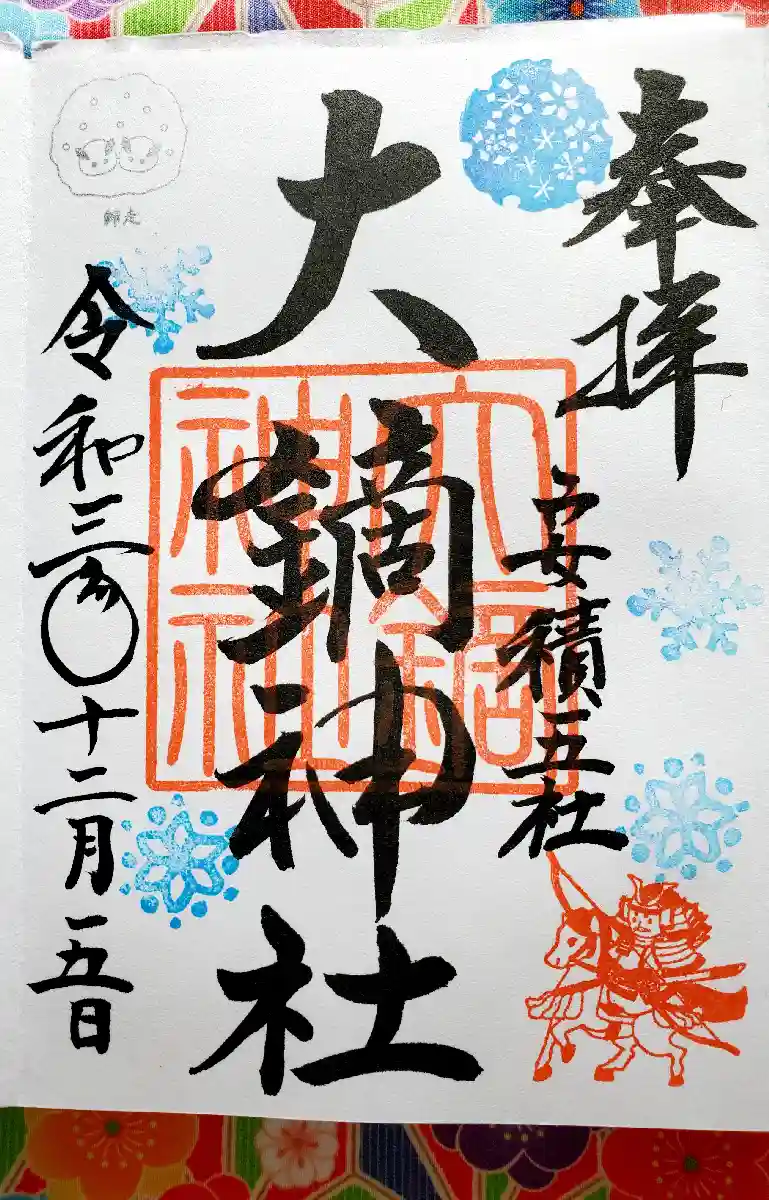 奉拝
安積五社
大鏑神社
大鏑
神社
令和三年十二月五日
師走